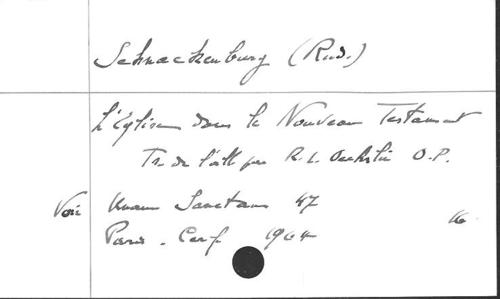 Schnackenburg (Rud.)
L'Église dans le Nouveau Testament
Tr. de l'all. par R. L. Oechslin O.P.
Voir Unam Sanctam 47
Paris - Cerf 1964
16